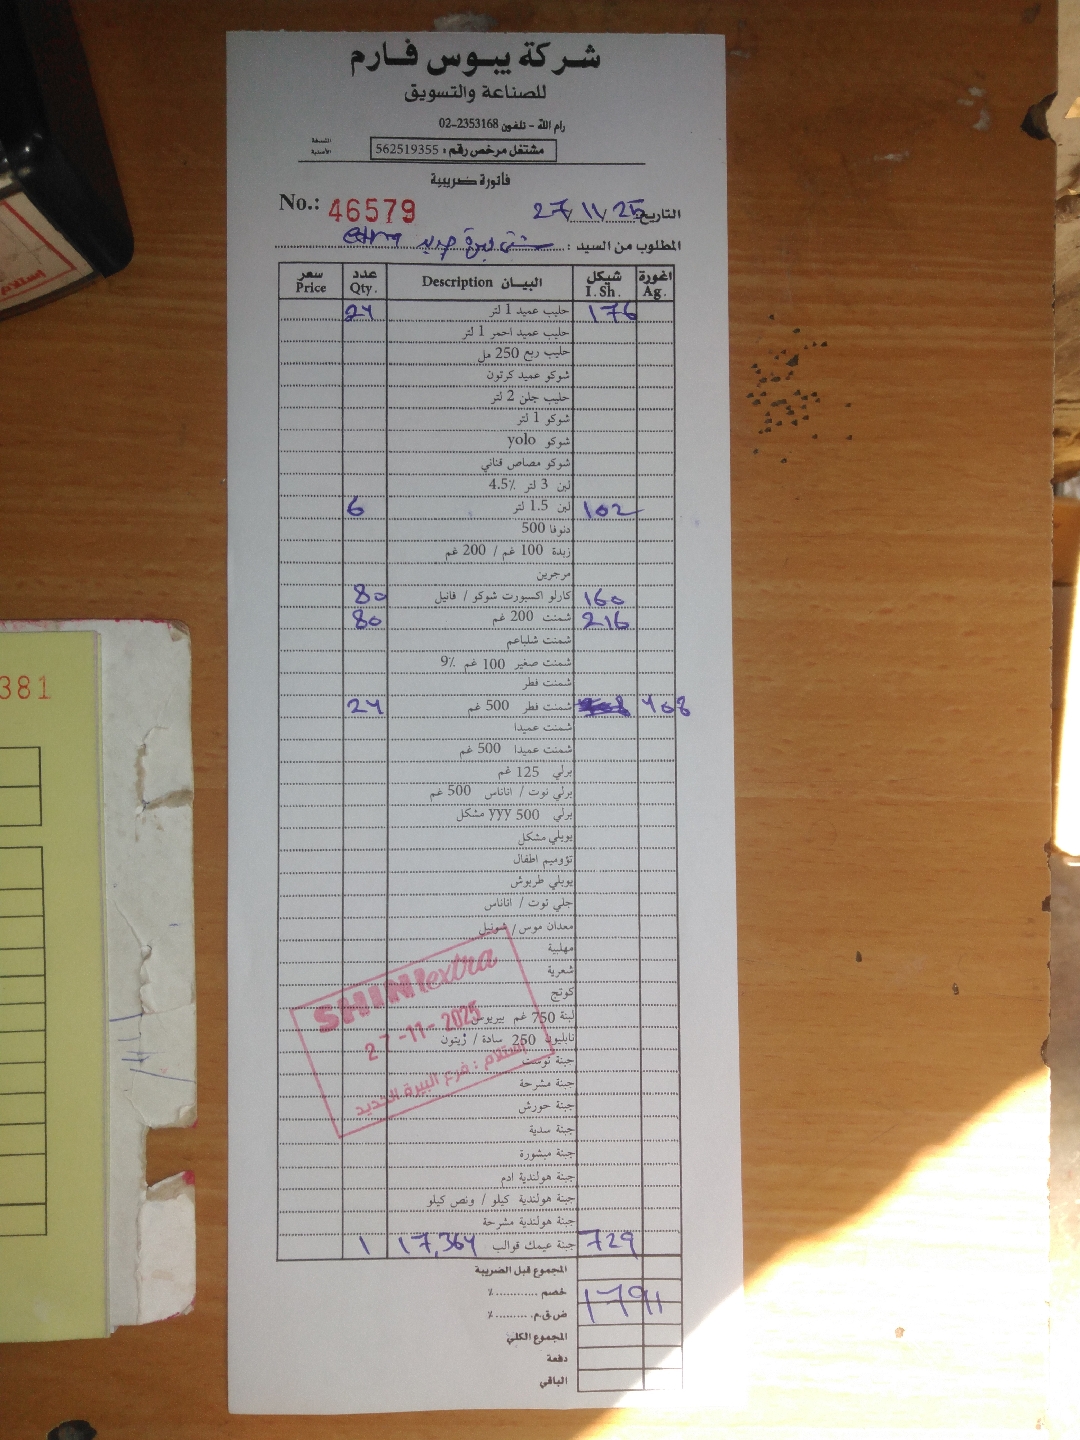 شركة يبوس فارم
للصناعة والتسويق
رام الله - تلفون 2353168-02
النسخة الأصلية
مشتغل مرخص رقم : 562519355
فاتورة ضريبية
No.: 46579
التاريخ 27/11/25
المطلوب من السيد : جديد
سعر Price عدد Qty. البيان Description شيكل I.Sh. اغورة Ag.
24 حليب عميد 1 لتر 176
حليب عميد احمر 1 لتر
حليب ربع 250 مل
شوكو عميد كرتون
حليب جلن 2 لتر
شوكو 1 لتر
شوكو yolo
شوكو مصاص قناني
لبن 3 لتر 4.5٪
6 لبن 1.5 لتر 102
دنوفا 500
زبدة 100 غم / 200 غم
مرجرين
80 كارلو اكسبورت شوكو / فانيل 160
80 شمنت 200 غم 216
شمنت شلباعم
شمنت صغير 100 غم 9٪
شمنت فطر
24 شمنت فطر 500 غم 408
شمنت عميدا
شمنت عميدا 500 غم
برلي 125 غم
برلي توت / اناناس 500 غم
برلي 500 yyy مشكل
يويلي مشكل
تؤوميم اطفال
يوبلي طربوش
جلي توت / اناناس
معدان موس /
مهلبية
شعرية
كوتج
لبنة 750 غم بيريوس
نابليون 250 سادة / زيتون
جبنة توست
جبنة مشرحة
جبنة حورش
جبنة سدية
جبنة مبشورة
جبنة هولندية ادم
جبنة هولندية كيلو / ونص كيلو
جبنة هولندية مشرحة
1 17,364 جبنة عيمك قوالب 729
المجموع قبل الضريبة
خصم ............ ٪
ض.ق.م. .......... ٪ 1791
المجموع الكلي
دفعة
الباقي
SHINI extra
27-11-2025
استلام : فرع البيرة الجديد
381
استلام